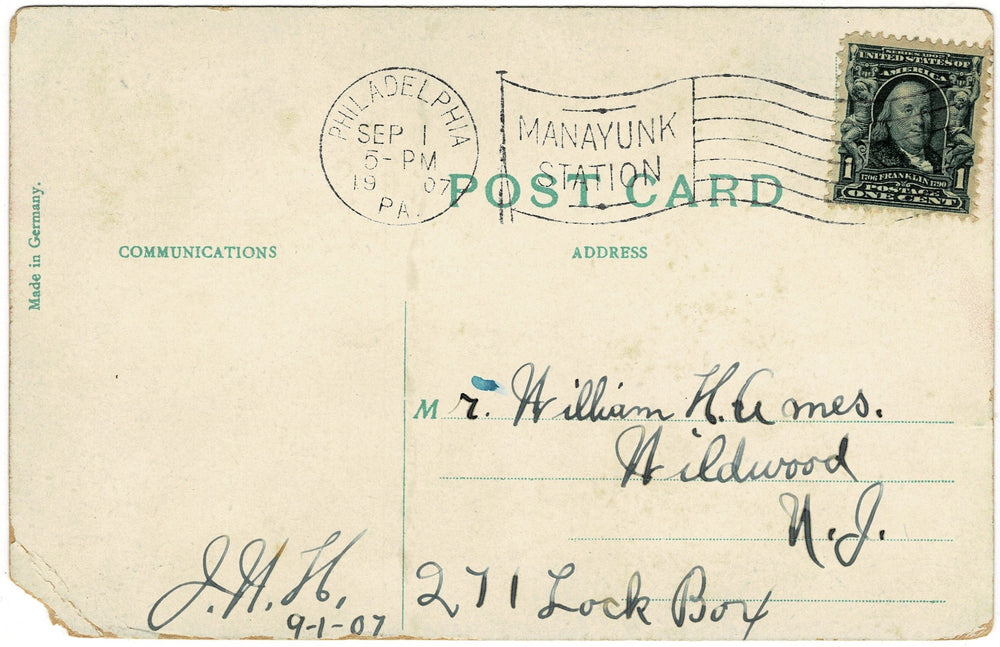 PHILADELPHIA
SEP 1
5- PM
19 07
PA.
MANAYUNK
STATION
SERIES 1902
UNITED STATES OF
AMERICA
1 1706 FRANKLIN 1790 1
POSTAGE
ONE CENT
POST CARD
Made in Germany.
COMMUNICATIONS
ADDRESS
Mr. William H. Ames.
Wildwood
N.J.
271 Lock Box
J.H.H.
9-1-07